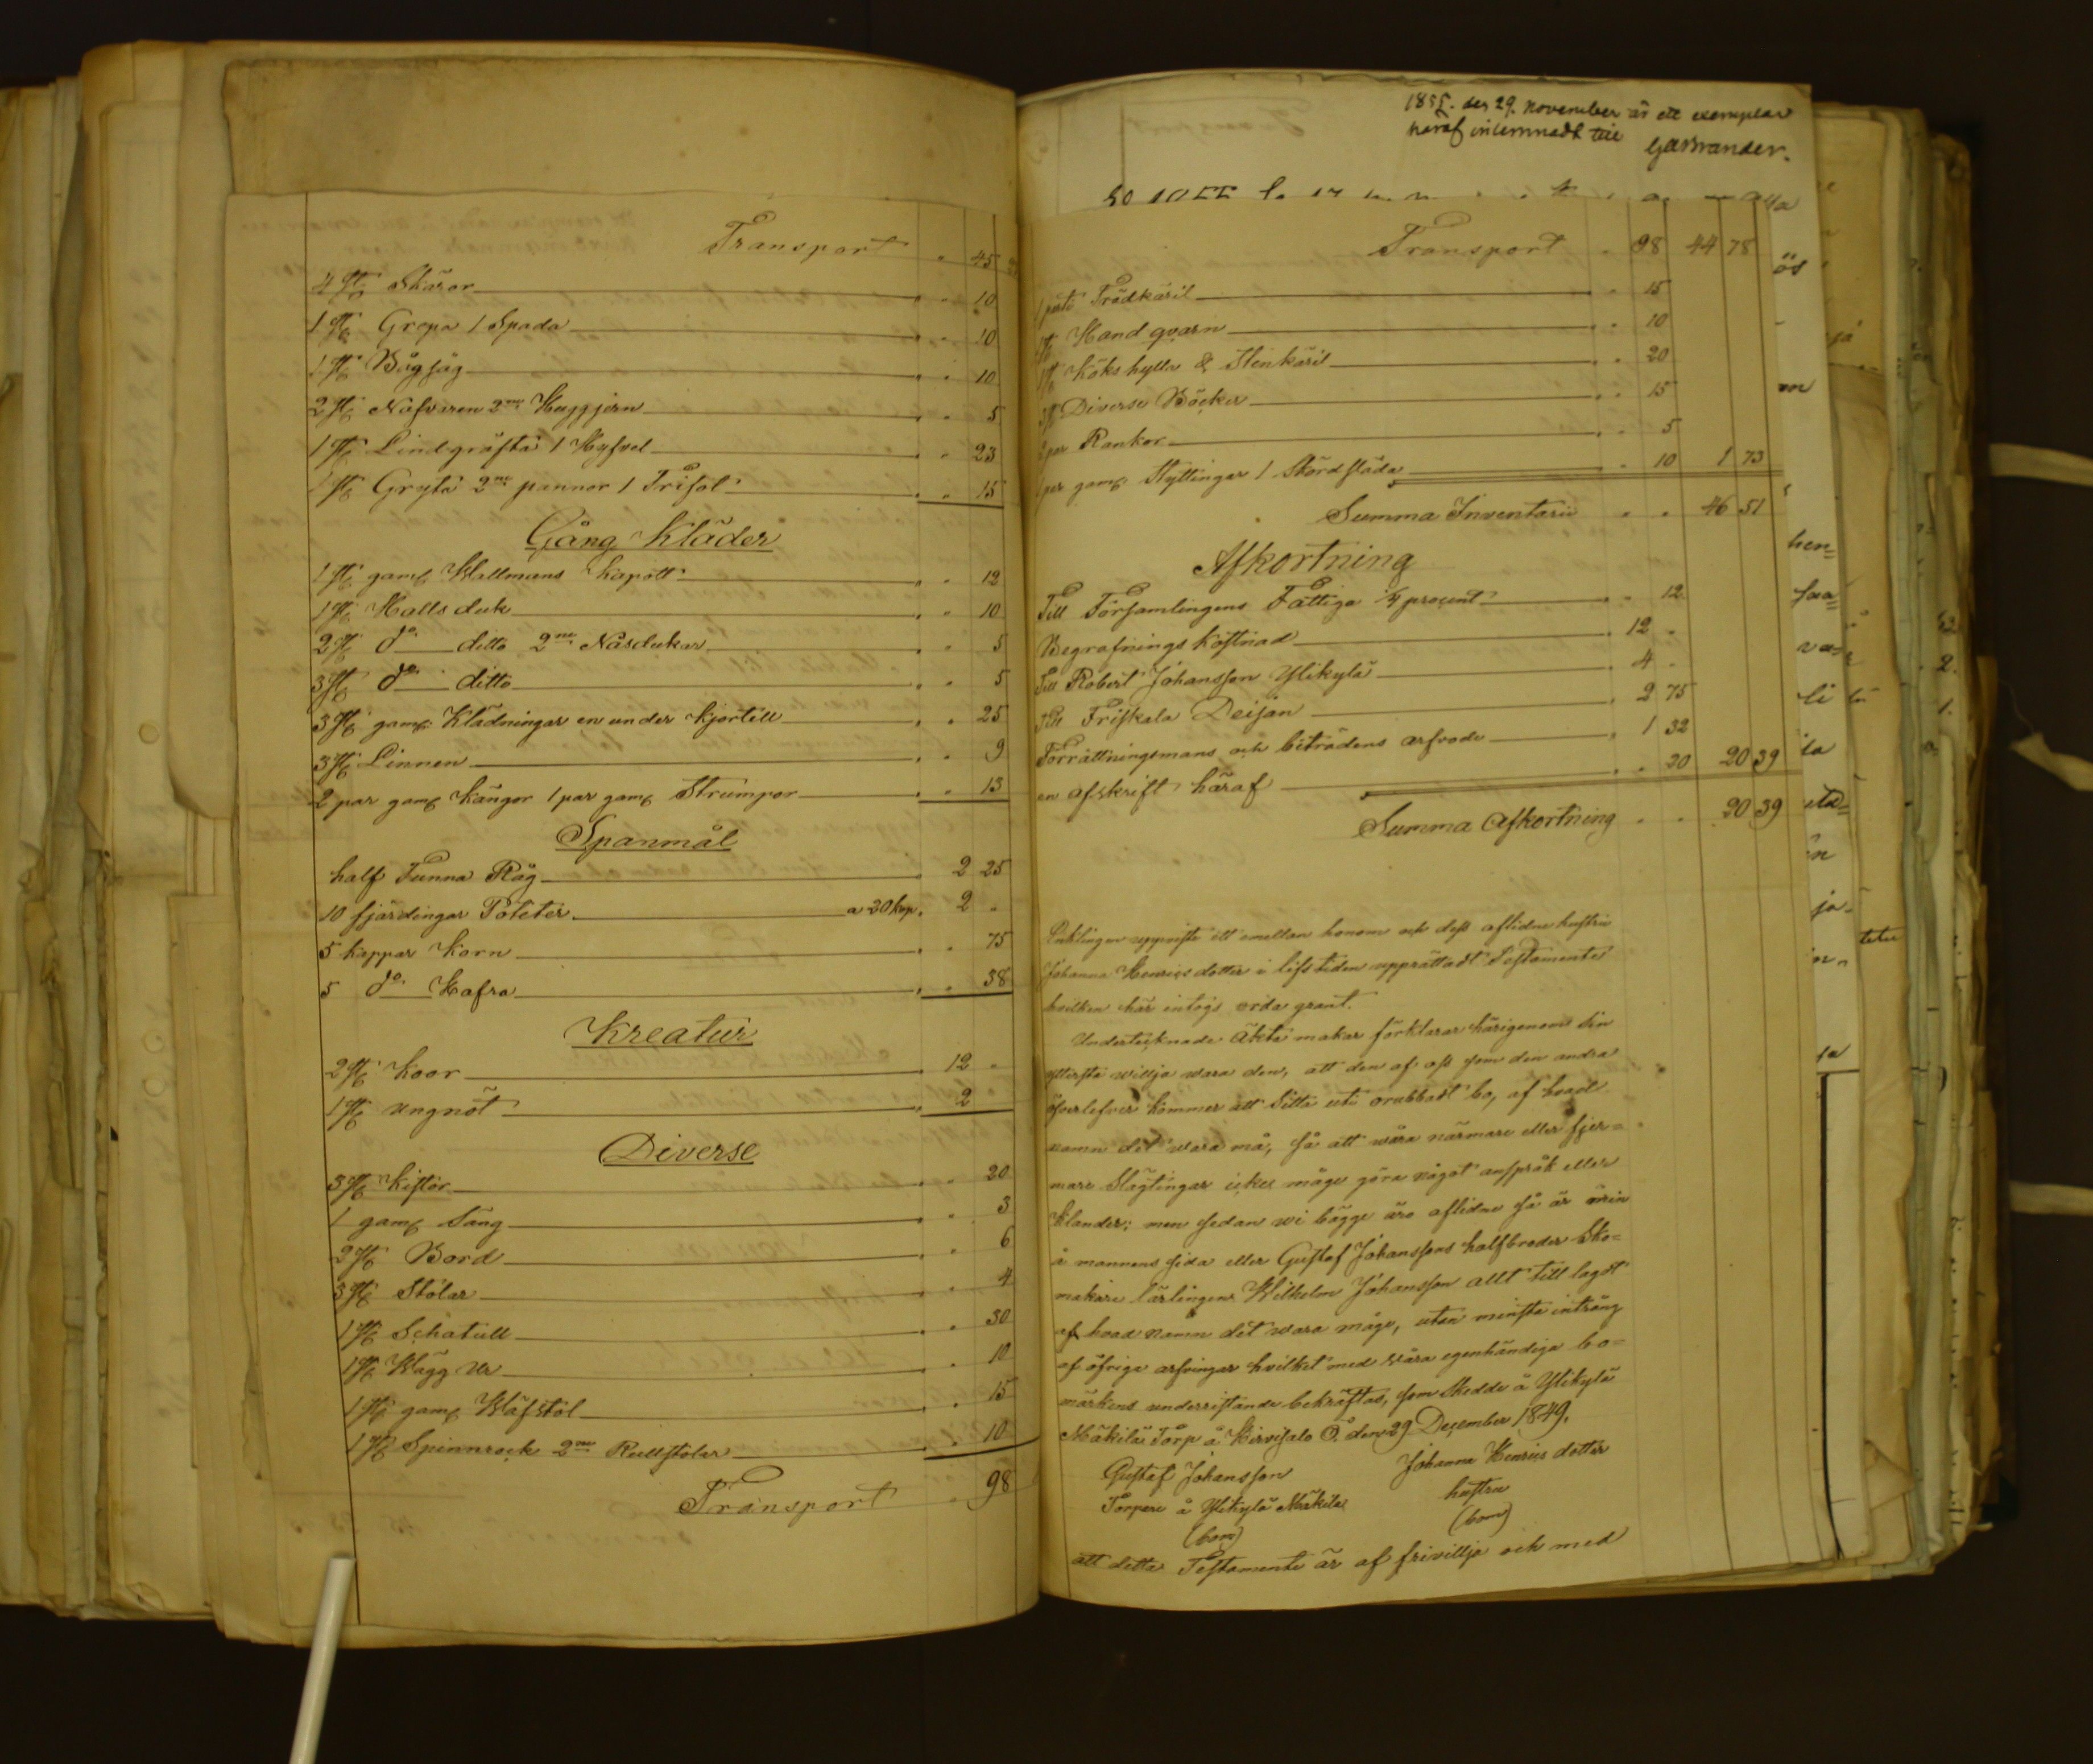 Transport " 45
4 st Skäror " " 10
1 st Grepa 1 Spada " " 10
1 st Bågsåg " " 10
2 st Nafvaren 2ne Huggjern " " 5
1 st Lindgräfta 1 Hyfvel " " 23
1 st Gryta 2ne pannor 1 Trifot " " 15
Gång Kläder
1 st gaml Wallmans Kapott " " 12
1 st Halls duk " " 10
2 st do ditto 2ne Näsdukar " " 5
3 st do ditto " " 5
3 st gaml Klädningar en under kjortill " " 25
3 st Linnen " " 9
2 par gaml Kängor 1 par gaml Strumpor " " 13
Spanmål
half Tunna Råg " 2 25
10 fjärdingar Poteter a 20 kop. 2 "
5 kappar Korn " " 75
5 do Hafra " " 38
Kreatur
2 st Koor " 12 "
1 st ungnöt " 2
Diverse
3 st Kistor " " 20
1 gaml Säng " " 3
2 st Bord " " 6
3 st Stolar " " 4
1 st Schatull " " 30
1 st Wägg Ur " " 10
1 st gaml Wäfstol " " 15
1 st Spinnrock 2ne Rullstolar " " 10
Transport " 98
1855. den 29. November är ett exemplar
häraf inlemnadt till
Transport " 98 44 78
1 parti Trädkäril " " 15
1 st Hand qvarn " " 10
1 st Kökshylla & Stenkäril " " 20
3 st Diverse Böcker " " 15
2 par Rankor " " 5
1 par gaml Styttingar 1 Skördsläda " " 10 1 73
Summa Inventarii " " 46 51
Afkortning
Till Församlingens Fattiga 1/4 procent " " 12
Begrafnings kostnad " 12 "
Till Robert Johansson Ylikylä " 4 "
Till Friskala Deijan " 2 75
Förrättningsmans och biträdens arfvode " 1 32
en afskrift häraf " " 20 20 39
Summa Afkortning " " 20 39
Enklingen uppviste ett emellan honom och dess aflidne hustru
Johanna Henrics dotter i lifstiden upprättadt Testamente
hvilken här intogs orda grant.
Undertecknade Äkta makar förklarar härigenom sin
yttersta willja wara den, att den af oss som den andra
öfverlefver kommer att sitta uti orubbadt bo, af hvad
namn det wara må, så att wåra närmare eller fjer=
mare Slägtingar icke måge göra något anspråk eller
klander; men sedan wi bägge äro aflidne så är min
å mannens sida eller Gustaf Johanssons halfbroder Sko=
makare lärlingen Wilhelm Johansson allt till lagdt
af hvad namn det wara måge, utan minsta intrång
af öfriga arfvingar hvilket med wåra egenhändiga bo=
märkens underristande bekräftas, som skedde å Ylikylä
Mäkilä Torp å Hirvisalo Ö. den 29 December 1849.
Gustaf Johansson Johanna Henrics dotter
Torpare å Ylikylä Mäkilä hustru
(bom) (bom)
att detta Testamente är af frivillja och med